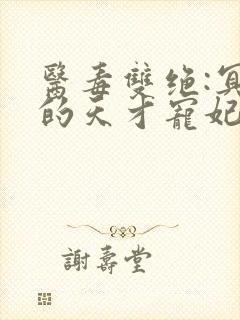 醫毒雙绝:冥
的天才寵妃
謝壽堂